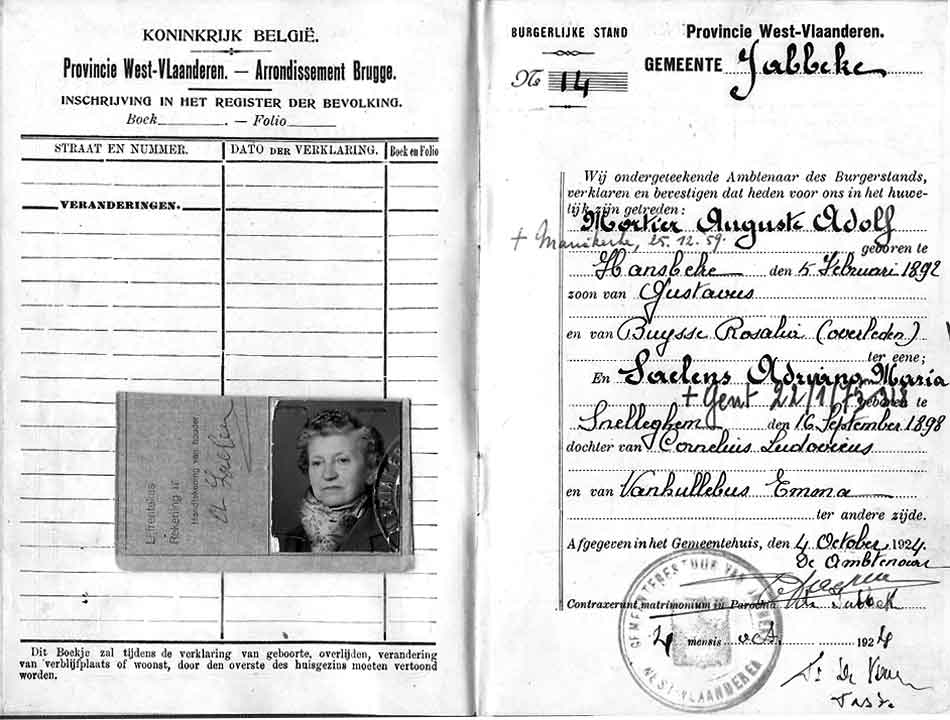 KONINKRIJK BELGIË.
Provincie West-Vlaanderen. — Arrondissement Brugge.
INSCHRIJVING IN HET REGISTER DER BEVOLKING.
Boek . — Folio
STRAAT EN NUMMER. DATO DER VERKLARING. Boek en Folio
VERANDERINGEN.
Lijfrentekas
Rekening nr
Handtekening van houder
Dit Boekje zal tijdens de verklaring van geboorte, overlijden, verandering
van verblijfplaats of woonst, door den overste des huisgezins moeten vertoond
worden.
BURGERLIJKE STAND
No 14
Provincie West-Vlaanderen.
GEMEENTE Jabbeke
Wij ondergeteekende Ambtenaar des Burgerstands,
verklaren en bevestigen dat heden voor ons in het huwe-
lijk zijn getreden:
Mortier Auguste Adolf
+ Mariakerke, 25.12.59.
geboren te
Hansbeke den 5 Februari 1892
zoon van Gustavus
en van Buysse Rosalia (overleden)
ter eene;
En Saelens Adryana Maria
+ Gent 22/1/75
geboren te
Snelleghem den 16 September 1898
dochter van Cornelius Ludovicus
en van Vanhullebus Emona
ter andere zijde.
Afgegeven in het Gemeentehuis, den 4 October 1924.
De Ambtenaar
Contraxerunt matrimonium in Parochia Jabbeke
4 mensis oct. 1924
GEMEENTEBESTUUR VAN JABBEKE
WEST-VLAANDEREN